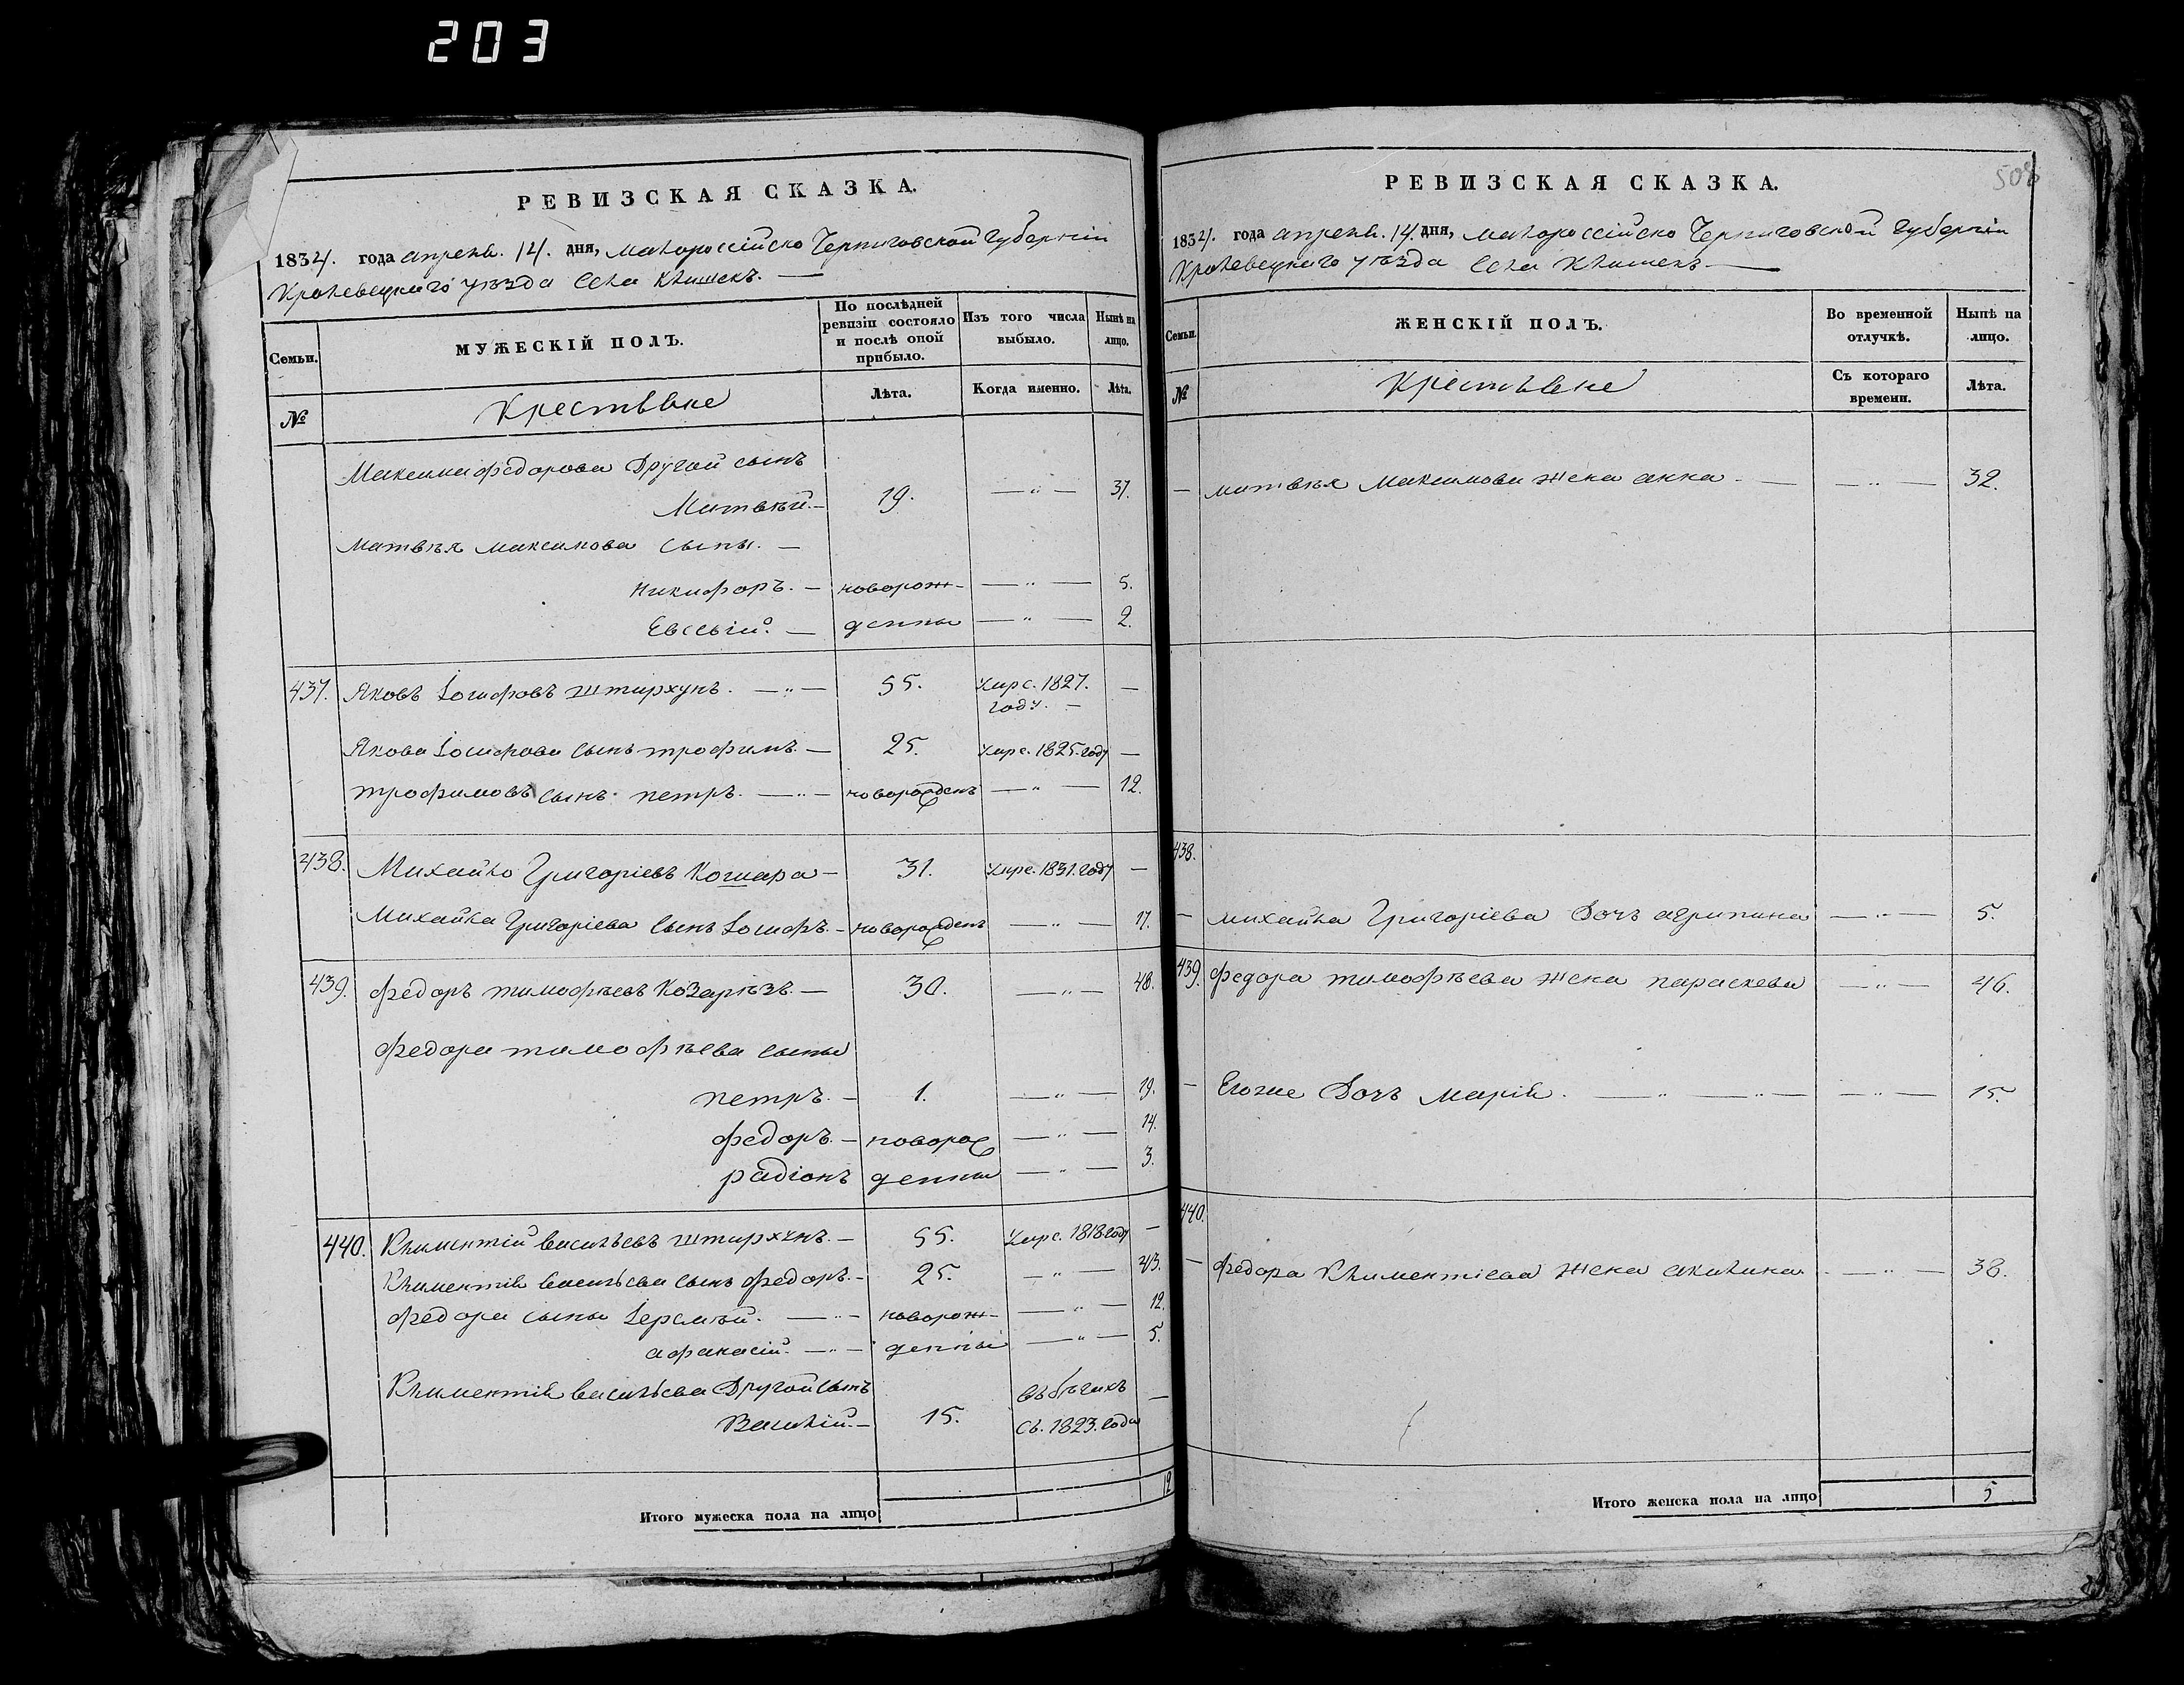 203
РЕВИЗСКАЯ СКАЗКА.
1834. года апреля. 14. дня, Малороссійско Черниговской Губерніи
Кролевецкаго уѣзда Села Клишекъ. —
Семьи.
МУЖЕСКІЙ ПОЛЪ.
По послѣдней ревизіи состояло и послѣ оной прибыло.
Изъ того числа выбыло.
Нынѣ на лицо.
№
Крестьяне
Лѣта.
Когда именно.
Лѣта.
Максима федорова Другой сынъ
Матвѣй. — 19. — " — 37.
Матвѣя Максимова Сыны. —
Никифоръ. — новорож- — " — 5.
Евсѣій. — денны — " — 2.
437. Яковъ Іосифовъ Штирхунъ. — " — 55. Умре. 1827. году. — —
Якова Іосифова Сынъ трофимъ. — 25. Умре. 1825. году —
трофимовъ сынъ петръ. — " — новорожденъ — " — 12.
438. Михайло Григоріевъ Кошара — 31. Умре. 1831. году —
Михайла Григоріева Сынъ Іосифъ. — новорожденъ — " — 17.
439. федоръ тимофѣевъ Козарѣзъ. — 30. — " — 48.
федора тимофѣева сыны
петръ. — 1. — " — 19.
федоръ. — новорож — " — 14.
радіонъ денны — " — 3.
440. Климентій Васильевъ Штирхунъ. — 55. Умре. 1818 году —
Климентія Васильева Сынъ федоръ. — 25. — " — 43.
федора сыны Іеремѣй. — " — новорож- — " — 12.
афанасій. — " — денны — " — 5.
Климентія Васильева Другой сынъ
Василій. — 15. въ бѣгахъ съ. 1823. года —
Итого мужеска пола на лицо 12
508
РЕВИЗСКАЯ СКАЗКА.
1834. года апреля. 14. дня, Малороссійско Черниговской Губерніи
Кролевецкаго уѣзда Села Клишекъ —
Семьи.
ЖЕНСКІЙ ПОЛЪ.
Во временной отлучкѣ.
Нынѣ на лицо.
№
Крестьяне
Съ котораго времени.
Лѣта.
— матвѣя Максимова жена анна — — " — 32.
438.
— михайла Григоріева Дочь агрипина — " — 5.
439. федора тимофѣева жена параскева — " — 46.
— Егоже Дочь марія. — " — " — — " — 15.
440.
— федора Климентіева жена акилина — " — 38.
Итого женска пола на лицо 5